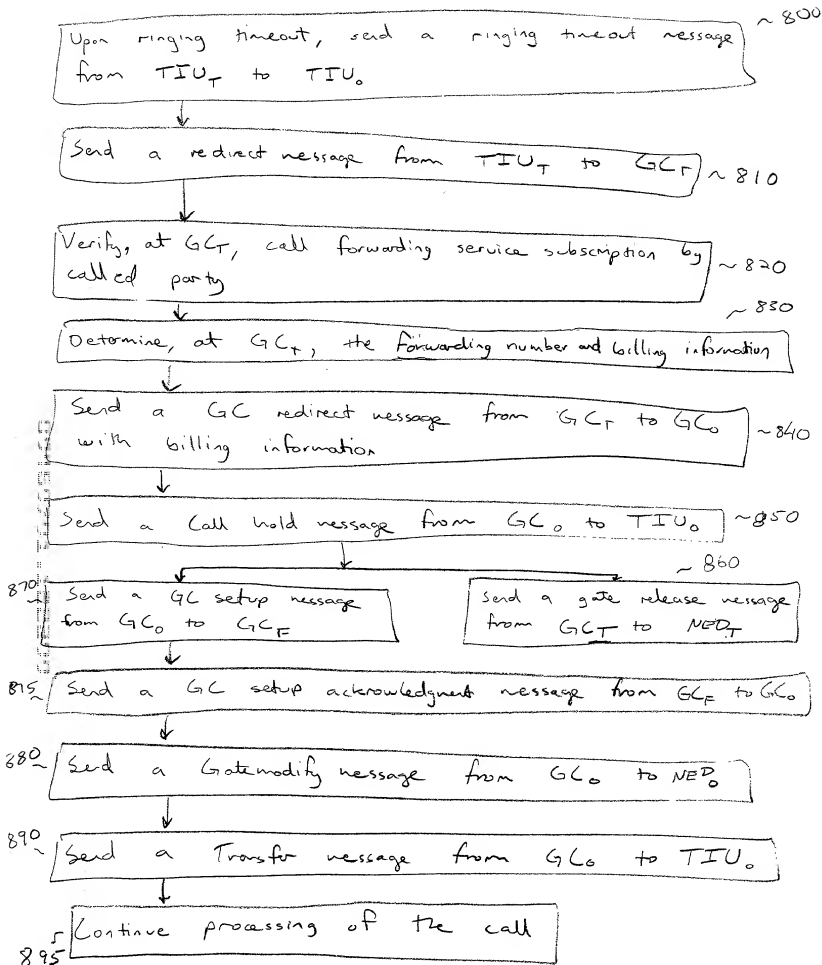 ~ 800
Upon ringing timeout, send a ringing timeout message
from TIU_T to TIU_O
Send a redirect message from TIU_T to GC_T
~ 810
Verify, at GC_T, call forwarding service subscription by
called party
~ 820
~ 830
Determine, at GC_T, the forwarding number and billing information
Send a GC redirect message from GC_T to GC_O
with billing information
~ 840
Send a Call hold message from GC_O to TIU_O
~ 850
~ 860
870
Send a GC setup message
from GC_O to GC_F
Send a gate release message
from GC_T to NED_T
875
Send a GC setup acknowledgment message from GC_F to GC_O
880
Send a Gatemodify message from GC_O to NED_O
890
Send a Transfer message from GC_O to TIU_O
Continue processing of the call
895